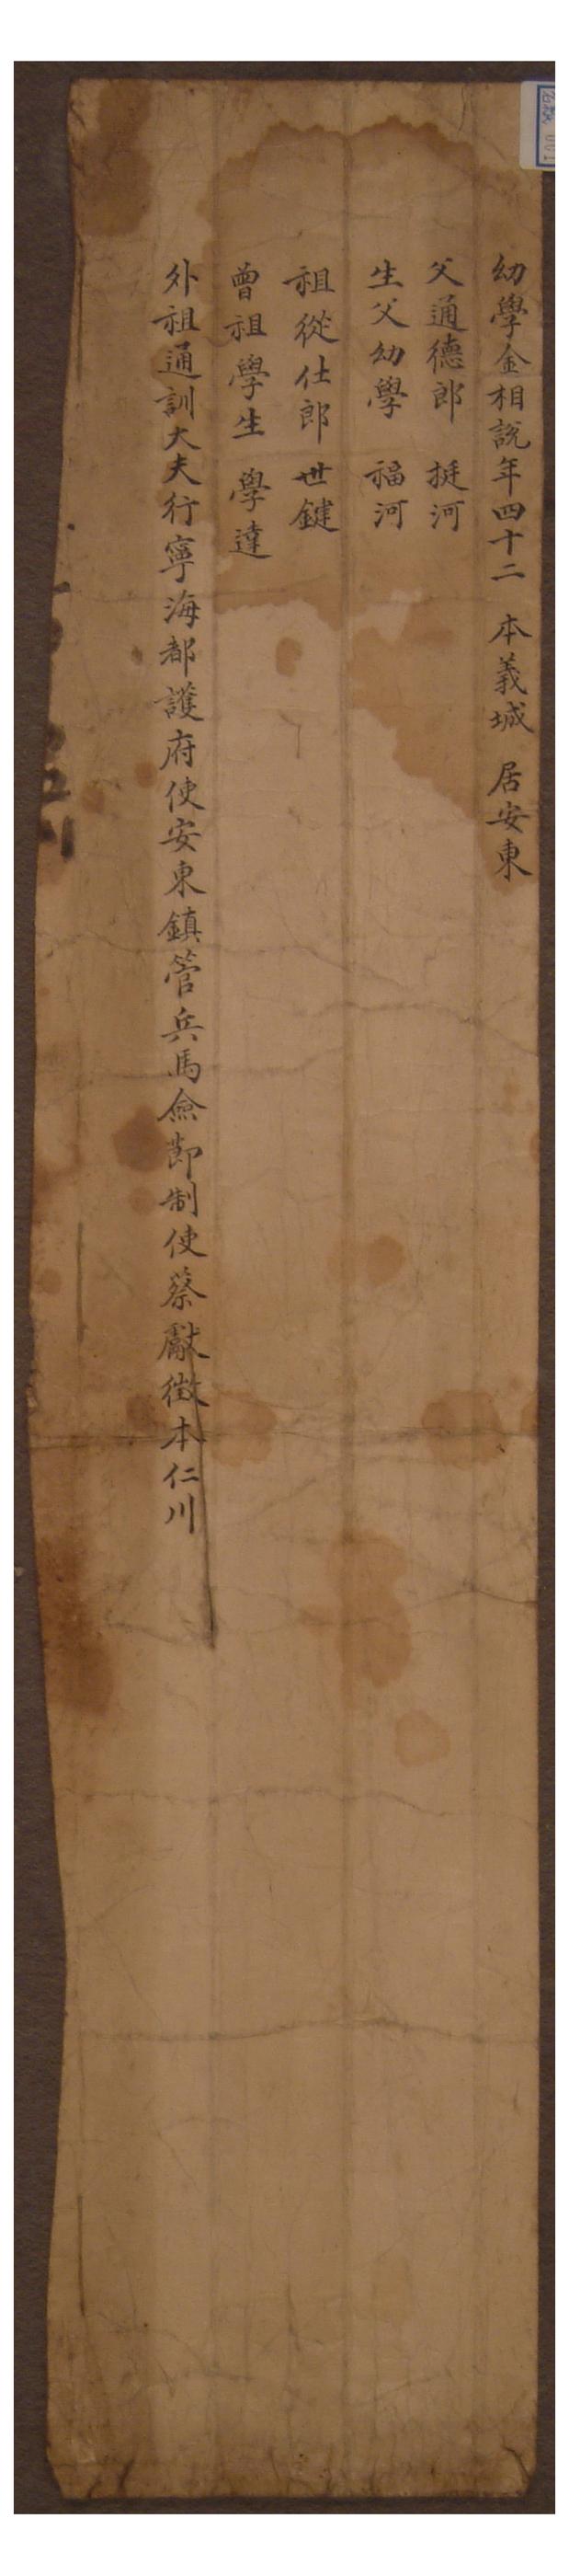 幼學金相說年四十二 本義城 居安東
父通德郎 挺河
生父幼學 福河
祖從仕郎 世鍵
曾祖學生 學達
外祖通訓大夫行寧海都護府使安東鎮管兵馬僉節制使蔡獻徵本仁川